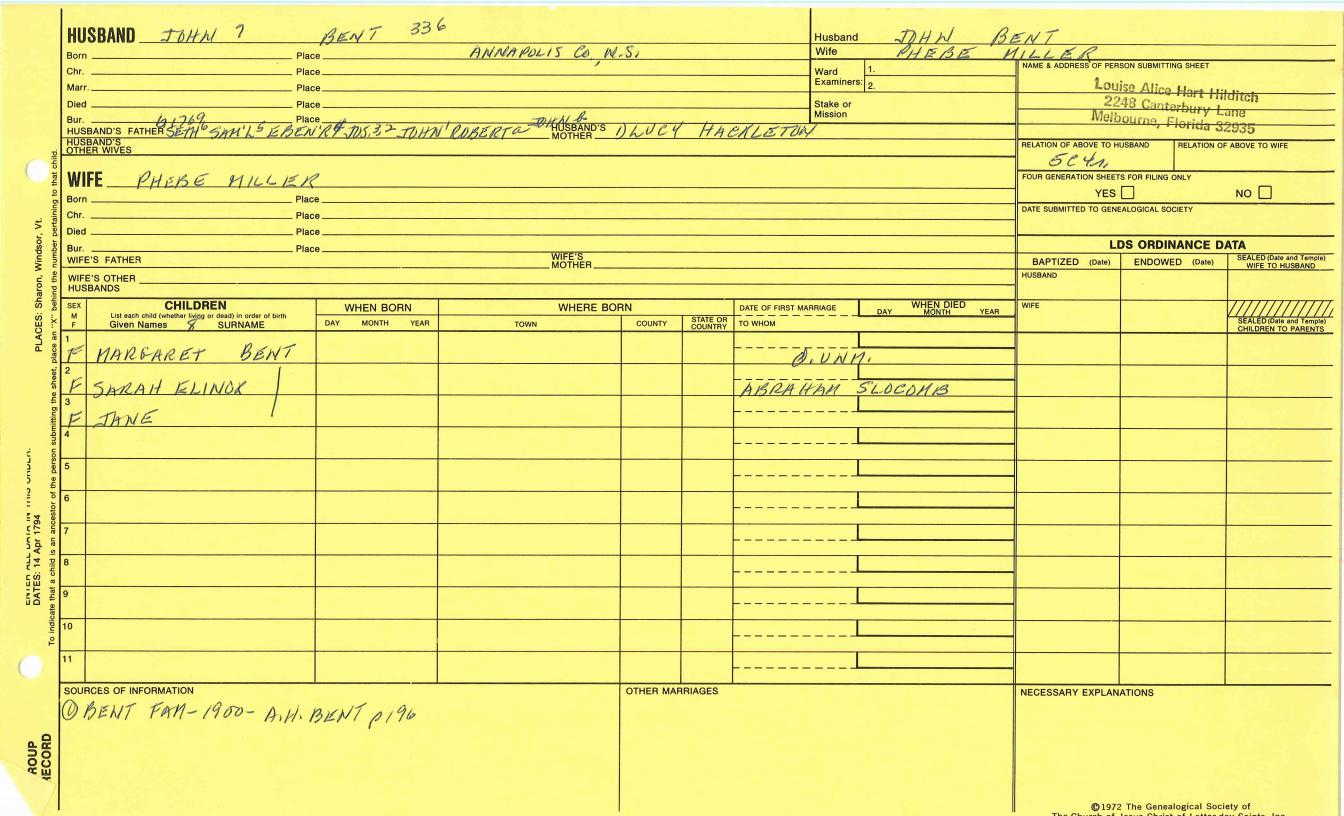 HUSBAND JOHN 7 BENT 336
Born Place ANNAPOLIS Co., N.S.
Chr. Place
Marr. Place
Died Place
Bur. Place
b1769
HUSBAND'S FATHER SETH6 SAM'L5 EBEN'R4 JOS.32 JOHN1 ROBERTa JOHN b HUSBAND'S MOTHER LUCY HACKLETON
HUSBAND'S OTHER WIVES
WIFE PHEBE MILLER
Born Place
Chr. Place
Died Place
Bur. Place
WIFE'S FATHER WIFE'S MOTHER
WIFE'S OTHER HUSBANDS
Husband JOHN BENT
Wife PHEBE MILLER
Ward Examiners: 1. 2.
Stake or Mission
NAME & ADDRESS OF PERSON SUBMITTING SHEET
Louise Alice Hart Hilditch
2248 Canterbury Lane
Melbourne, Florida 32935
RELATION OF ABOVE TO HUSBAND RELATION OF ABOVE TO WIFE
5C4r
FOUR GENERATION SHEETS FOR FILING ONLY
YES NO
DATE SUBMITTED TO GENEALOGICAL SOCIETY
LDS ORDINANCE DATA
BAPTIZED (Date) ENDOWED (Date) SEALED (Date and Temple) WIFE TO HUSBAND
HUSBAND
WIFE
SEALED (Date and Temple) CHILDREN TO PARENTS
SEX M F
CHILDREN
List each child (whether living or dead) in order of birth
Given Names 8 SURNAME
WHEN BORN
DAY MONTH YEAR
WHERE BORN
TOWN COUNTY STATE OR COUNTRY
DATE OF FIRST MARRIAGE
TO WHOM
WHEN DIED
DAY MONTH YEAR
1
F MARGARET BENT d. UNM.
2
F SARAH ELINOR ABRAHAM SLOCOMB
3
F JANE
4
5
6
7
8
9
10
11
SOURCES OF INFORMATION
① BENT FAM-1900- A.H. BENT p196
OTHER MARRIAGES
NECESSARY EXPLANATIONS
©1972 The Genealogical Society of
The Church of Jesus Christ of Latter-day Saints, Inc.
PLACES: Sharon, Windsor, Vt.
ENTER ALL DATA IN THIS ORDER:
DATES: 14 Apr 1794
To indicate that a child is an ancestor of the person submitting the sheet, place an "X" behind the number pertaining to that child.
ROUP
RECORD